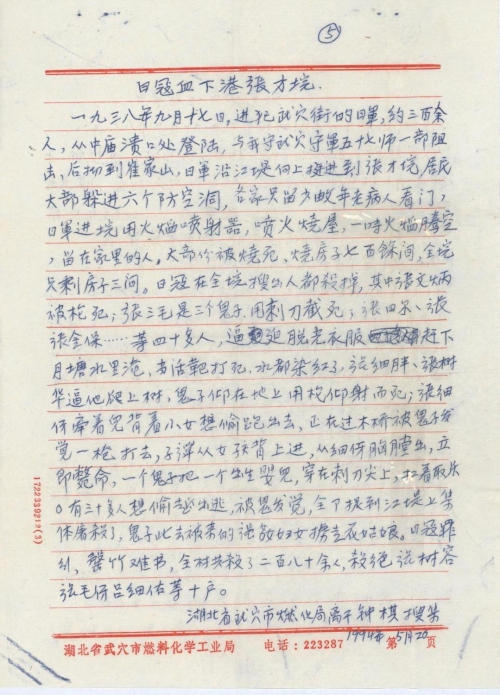 ⑤
日寇血下港張才垸.
一九三八年九月十七日,進犯武穴街的日軍,約三百余
人,从中庙溃口处登陆,与我守武穴守軍五十七师一部阻
击,后攻到崔家山,日軍沿江堤向上推进到張才垸,居民
大部躲进六个防空洞,各家只留方数年老病人看门,
日軍进垸用火焰喷射器,喷火燒屋,一時火焰騰空
,留在家里的人。大部份被燒死,燒房子七百餘间,全垸
只剩房子三间。日寇在全垸搜出人都殺掉,其中張文炳
被枪死;張三毛是三个鬼子用刺刀截死;張田尔、張
張全保……等四十多人,逼迫脱光衣服赶下
月塘水里淹,当活靶打死,水都染红了,張细胖、張树
华逼他爬上树,鬼子仰在地上用枪仰射而死;張细
伢牵着兒背着小女想偷跑出去,正在过木桥被鬼子发
觉一枪打去,子弹从女孩背上进,从细伢胸膛出,立
即斃命,一个鬼子把一个出生婴兒,穿在刺刀尖上,扛着取乐
。有三十多人想偷出逃,被鬼发觉,全下提到江堤上集
体屠殺了,鬼子此去被辱的强姦妇女擄去衣姑娘。日寇罪
纠,罄竹难书,全村共殺了二百八十余人,殺绝張树容
張毛伢吕细佑等十户。
湖北省武穴市燃化局离干钟棋搜集
1994年5月20
湖北省武穴市燃料化学工业局 电话:223287 第 页
1722339212(3)